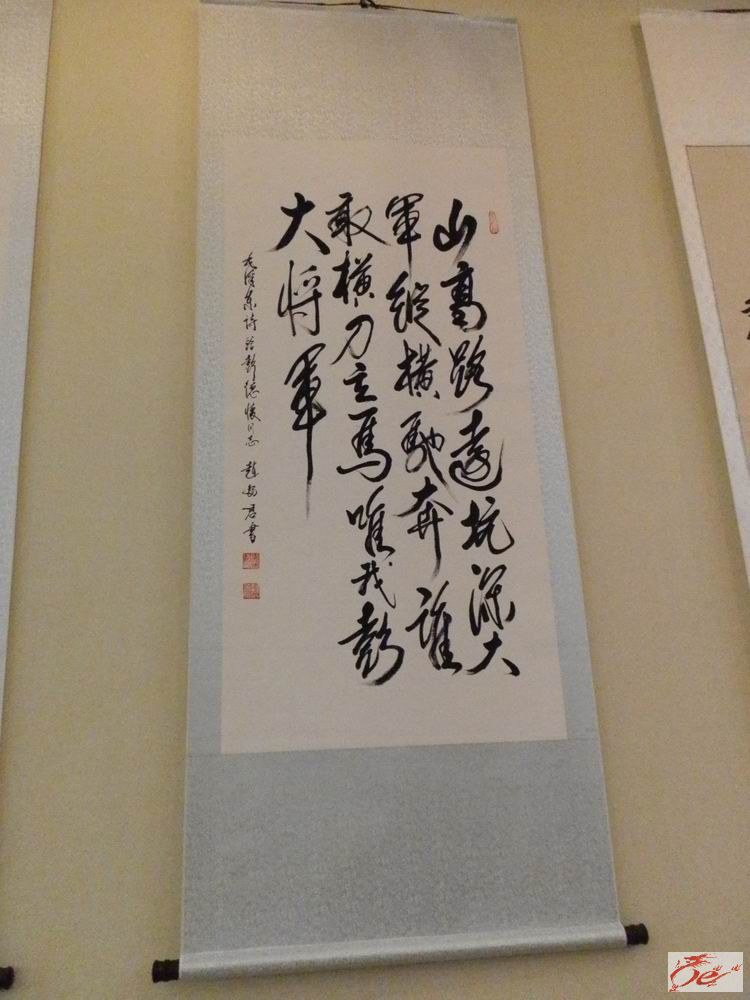 山高路遠坑深大
軍縱橫馳奔誰
敢橫刀立馬唯我彭
大将軍
毛澤東詩給彭德懷同志 趙
君書